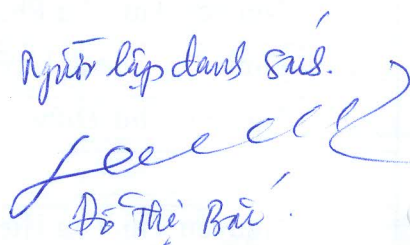 Người lập danh sách.
Đỗ Thị Bài